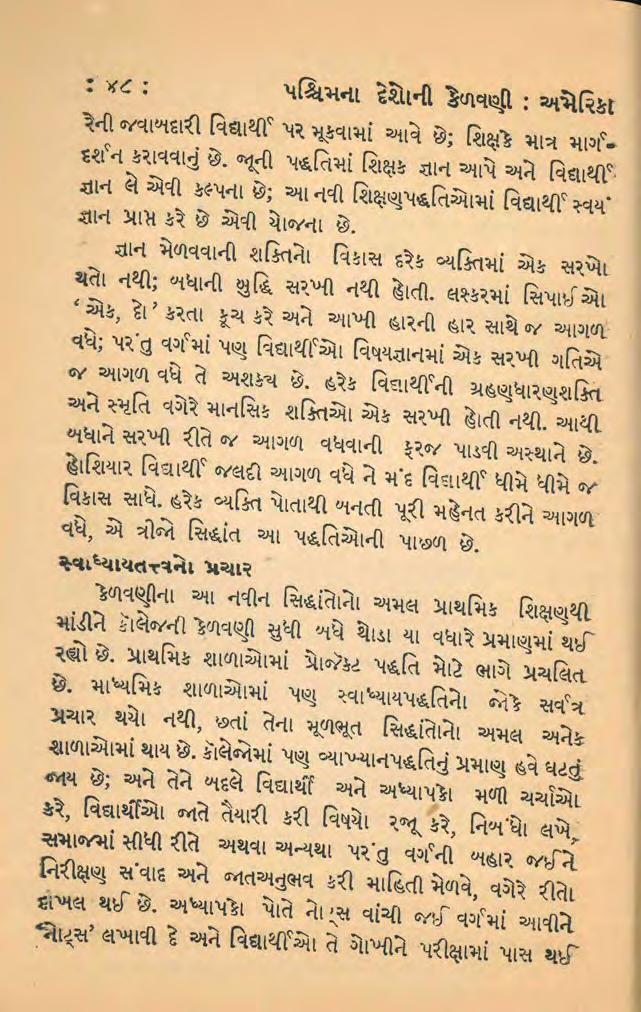 : ૪૮ : પશ્ચિમના દેશોની કેળવણી : અમેરિકા
રેની જવાબદારી વિદ્યાર્થી પર મૂકવામાં આવે છે; શિક્ષકે માત્ર માર્ગ-
દર્શન કરાવવાનું છે. જૂની પદ્ધતિમાં શિક્ષક જ્ઞાન આપે અને વિદ્યાર્થી
જ્ઞાન લે એવી કલ્પના છે; આ નવી શિક્ષણપદ્ધતિઓમાં વિદ્યાર્થી સ્વયં
જ્ઞાન પ્રાપ્ત કરે છે એવી યોજના છે.
જ્ઞાન મેળવવાની શક્તિનો વિકાસ દરેક વ્યક્તિમાં એક સરખો
થતો નથી; બધાની બુદ્ધિ સરખી નથી હોતી. લશ્કરમાં સિપાઈઓ
‘ એક, દો ’ કરતા કૂચ કરે અને આખી હારની હાર સાથે જ આગળ
વધે; પરંતુ વર્ગમાં પણ વિદ્યાર્થીઓ વિષયજ્ઞાનમાં એક સરખી ગતિએ
જ આગળ વધે તે અશક્ય છે. હરેક વિદ્યાર્થીની ગ્રહણધારણશક્તિ
અને સ્મૃતિ વગેરે માનસિક શક્તિઓ એક સરખી હોતી નથી. આથી
બધાને સરખી રીતે જ આગળ વધવાની ફરજ પાડવી અસ્થાને છે.
હોશિયાર વિદ્યાર્થી જલદી આગળ વધે ને મંદ વિદ્યાર્થી ધીમે ધીમે જ
વિકાસ સાધે. હરેક વ્યક્તિ પોતાથી બનતી પૂરી મહેનત કરીને આગળ
વધે, એ ત્રીજો સિદ્ધાંત આ પદ્ધતિઓની પાછળ છે.
સ્વાધ્યાયતત્ત્વનો પ્રચાર
કેળવણીના આ નવીન સિદ્ધાંતોનો અમલ પ્રાથમિક શિક્ષણથી
માંડીને કૉલેજની કેળવણી સુધી બધે થોડા યા વધારે પ્રમાણમાં થઈ
રહ્યો છે. પ્રાથમિક શાળાઓમાં પ્રોજૅક્ટ પદ્ધતિ મોટે ભાગે પ્રચલિત
છે. માધ્યમિક શાળાઓમાં પણ સ્વાધ્યાયપદ્ધતિનો જોકે સર્વત્ર
પ્રચાર થયો નથી, છતાં તેના મૂળભૂત સિદ્ધાંતોનો અમલ અનેક
શાળાઓમાં થાય છે. કૉલેજોમાં પણ વ્યાખ્યાનપદ્ધતિનું પ્રમાણ હવે ઘટતું
જાય છે; અને તેને બદલે વિદ્યાર્થી અને અધ્યાપકો મળી ચર્ચાઓ
કરે, વિદ્યાર્થીઓ જાતે તૈયારી કરી વિષયો રજૂ કરે, નિબંધો લખે,
સમાજમાં સીધી રીતે અથવા અન્યથા પરંતુ વર્ગની બહાર જઈને
નિરીક્ષણ સંવાદ અને જાતઅનુભવ કરી માહિતી મેળવે, વગેરે રીતો
દાખલ થઈ છે. અધ્યાપકો પોતે નોટ્સ વાંચી જઈ વર્ગમાં આવીને
‘નોટ્સ’ લખાવી દે અને વિદ્યાર્થીઓ તે ગોખીને પરીક્ષામાં પાસ થઈ